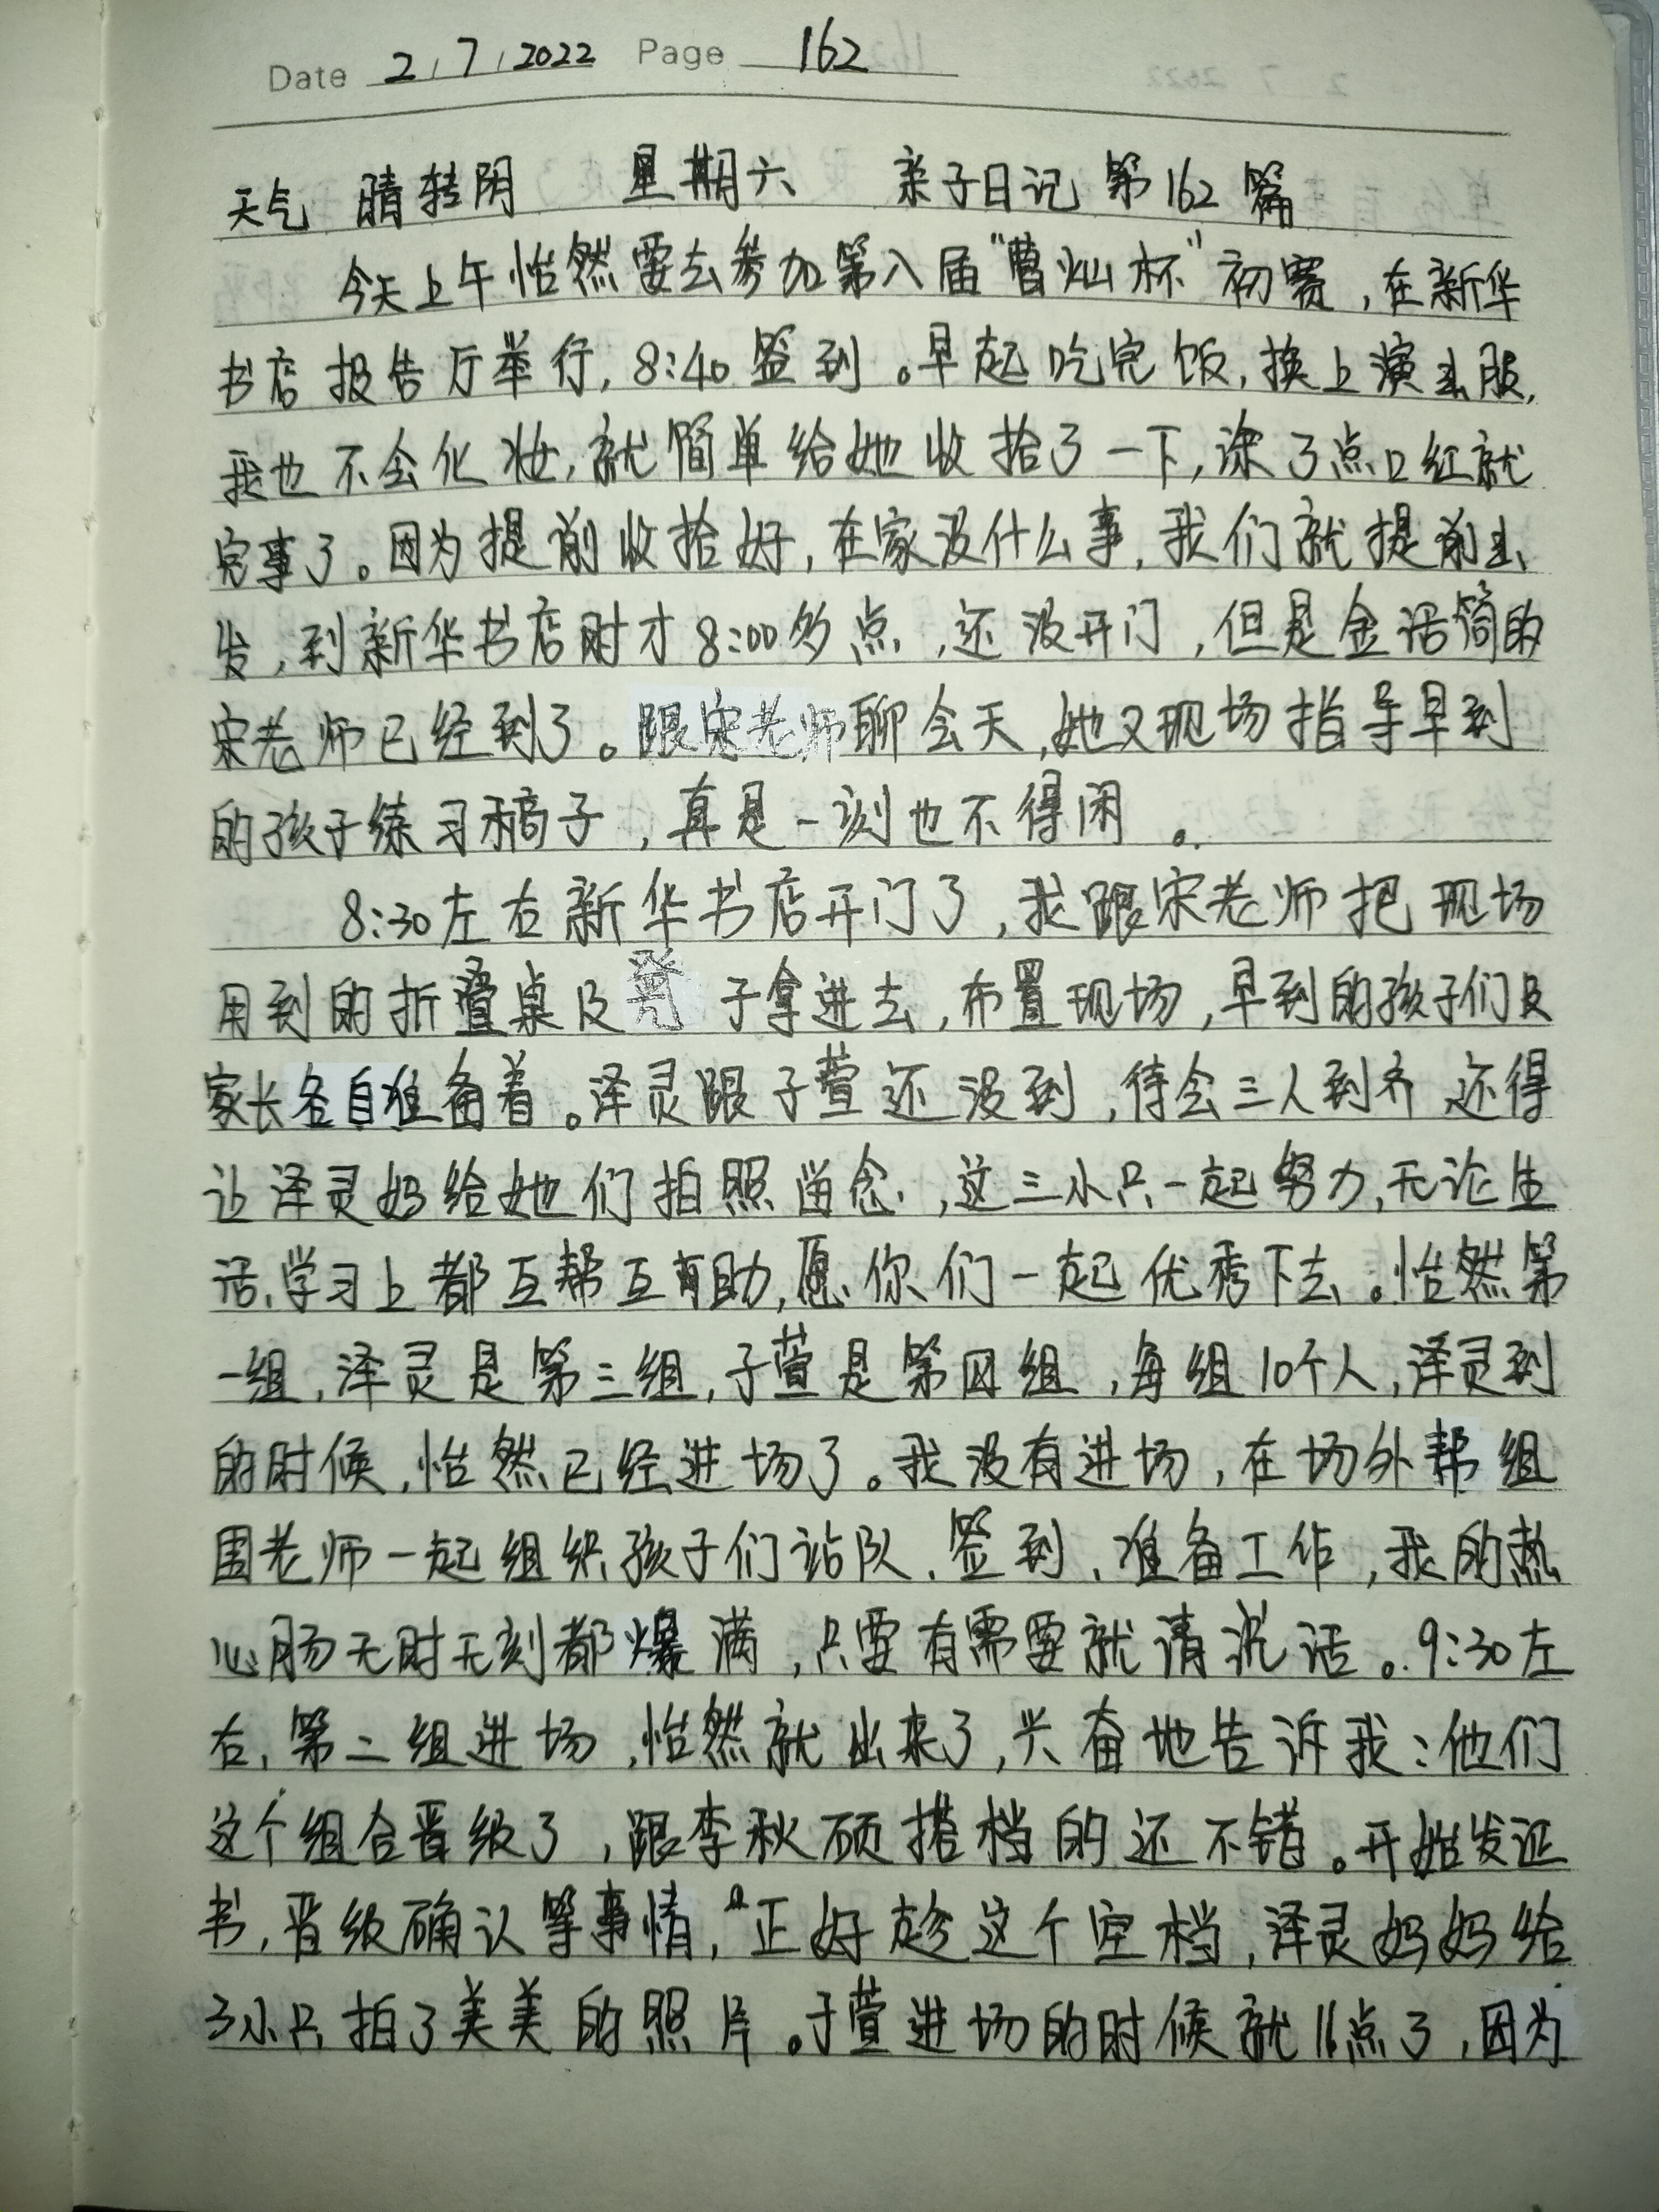 Date 2,7,2022 Page 162
天气 晴转阴 星期六 亲子日记 第162篇
今天上午怡然要去参加第八届"曹灿杯"初赛,在新华
书店报告厅举行,8:40签到。早起吃完饭,换上演出服,
我也不会化妆,就简单给她收拾了一下,涂了点口红就
完事了。因为提前收拾好,在家没什么事,我们就提前出
发,到新华书店时才8:00多点,还没开门,但是金话筒的
宋老师已经到了。跟宋老师聊会天,她又现场指导早到
的孩子练习稿子,真是一刻也不得闲。
8:30左右新华书店开门了,我跟宋老师把现场
用到的折叠桌及凳子拿进去,布置现场,早到的孩子们及
家长各自准备着。泽灵跟子萱还没到,待会三人到齐还得
让泽灵妈给她们拍照留念,这三小只一起努力,无论生
活、学习上都互帮互助,愿你们一起优秀下去。怡然第
一组,泽灵是第三组,子萱是第四组,每组10个人,泽灵到
的时候,怡然已经进场了。我没有进场,在场外帮组
周老师一起组织孩子们站队、签到、准备工作,我的热
心肠无时无刻都爆满,只要有需要就请说话。9:30左
右,第二组进场,怡然就出来了,兴奋地告诉我:他们
这个组合晋级了,跟李秋硕搭档的还不错。开始发证
书,晋级确认等事情,正好趁这个空档,泽灵妈妈给
3小只拍了美美的照片。子萱进场的时候就11点了,因为